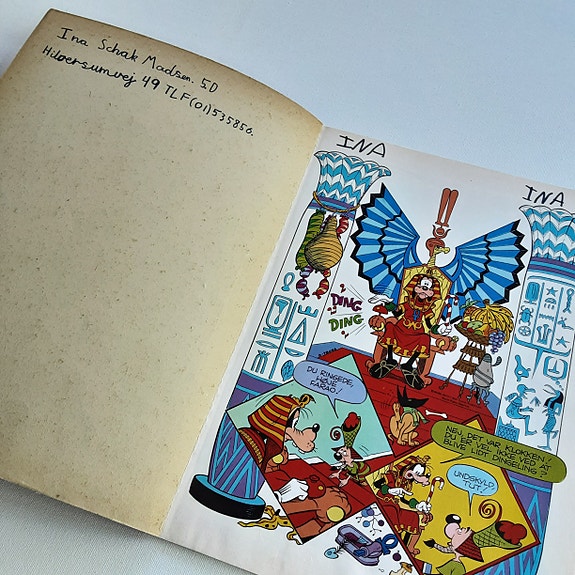 Ina Schak Madsen. 5.D
Hilversumvej 49 TLF(01)535850.
INA
INA
DING
DING
DU RINGEDE,
HØJE
FARAO!
NEJ, DET VAR KLOKKEN!
DU ER VEL IKKE VED AT
BLIVE LIDT DINGELING?
UNDSKYLD,
TUT!